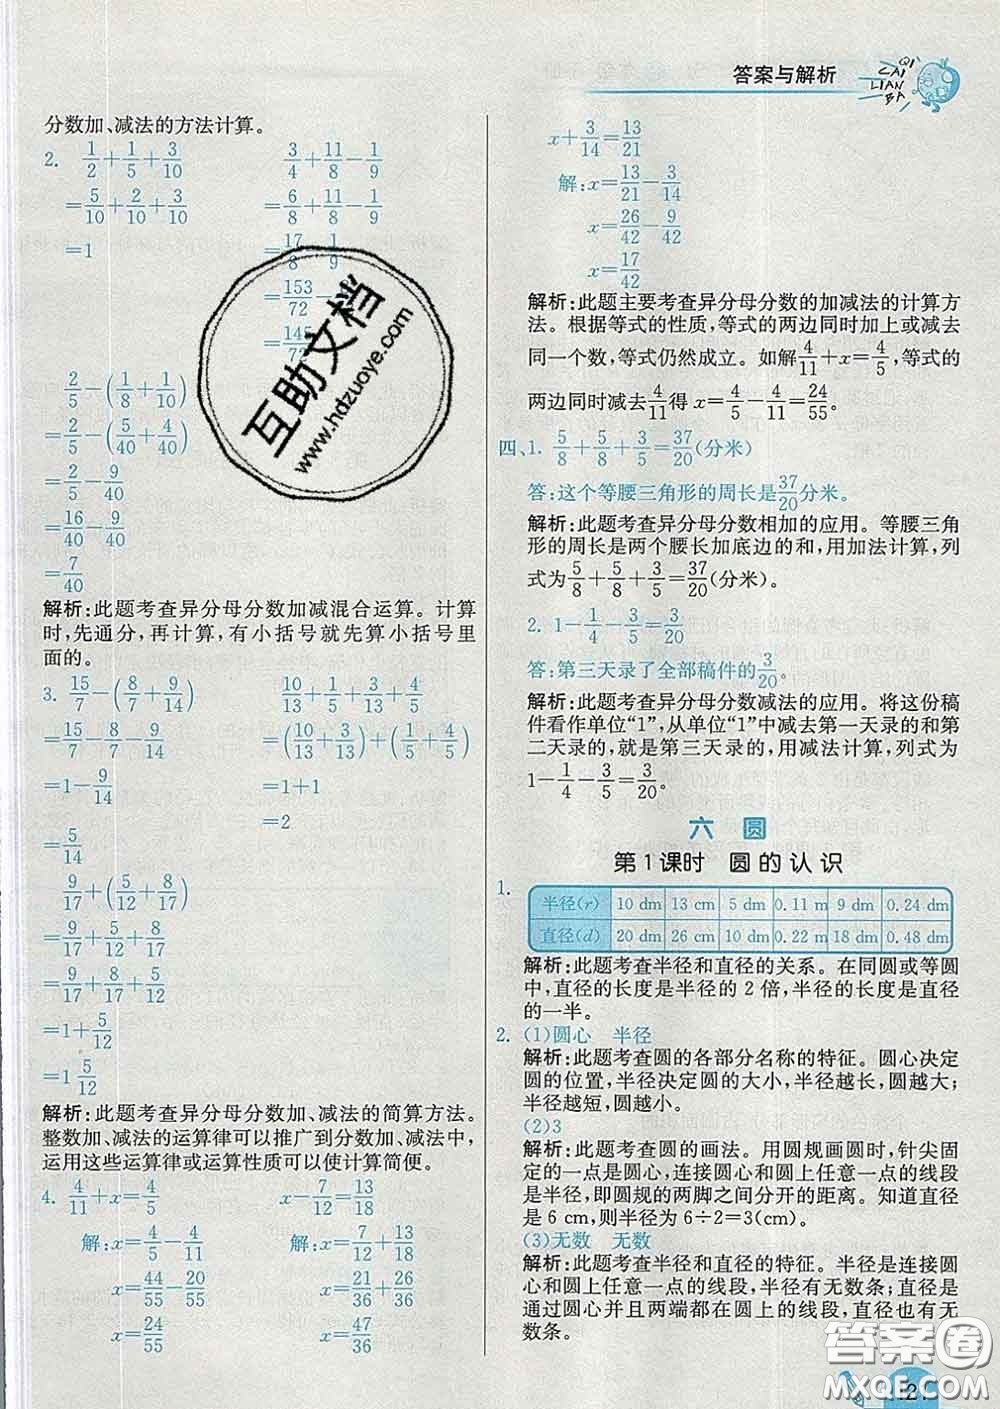 答案与解析
QI CAI LIAN BA
分数加、减法的方法计算。
2. 1/2+1/5+3/10    3/4+11/8-1/9
=5/10+2/10+3/10    =6/8+11/8-1/9
=1    =17/8-1/9
=153/72-
=145/72
2/5-(1/8+1/10)
=2/5-(5/40+4/40)
=2/5-9/40
=16/40-9/40
=7/40
解析:此题考查异分母分数加减混合运算。计算
时,先通分,再计算,有小括号就先算小括号里
面的。
3. 15/7-(8/7+9/14)    10/13+1/5+3/13+4/5
=15/7-8/7-9/14    =(10/13+3/13)+(1/5+4/5)
=1-9/14    =1+1
=5/14    =2
9/17+(5/12+8/17)
=9/17+5/12+8/17
=9/17+8/17+5/12
=1+5/12
=1 5/12
解析:此题考查异分母分数加、减法的简算方法。
整数加、减法的运算律可以推广到分数加、减法中,
运用这些运算律或运算性质可以使计算简便。
4. 4/11+x=4/5    x-7/12=13/18
解:x=4/5-4/11    解:x=7/12+13/18
x=44/55-20/55    x=21/36+26/36
x=24/55    x=47/36
x+3/14=13/21
解:x=13/21-3/14
x=26/42-9/42
x=17/42
解析:此题主要考查异分母分数的加减法的计算方
法。根据等式的性质,等式的两边同时加上或减去
同一个数,等式仍然成立。如解4/11+x=4/5,等式的
两边同时减去4/11得 x=4/5-4/11=24/55。
四、1. 5/8+5/8+3/5=37/20(分米)
答:这个等腰三角形的周长是37/20分米。
解析:此题考查异分母分数相加的应用。等腰三角
形的周长是两个腰长加底边的和,用加法计算,列
式为5/8+5/8+3/5=37/20(分米)。
2. 1-1/4-3/5=3/20
答:第三天录了全部稿件的3/20。
解析:此题考查异分母分数减法的应用。将这份稿
件看作单位“1”,从单位“1”中减去第一天录的和第
二天录的,就是第三天录的,用减法计算,列式为
1-1/4-3/5=3/20。
六 圆
第1课时 圆的认识
1.
半径(r) 10 dm 13 cm 5 dm 0.11 m 9 dm 0.24 dm
直径(d) 20 dm 26 cm 10 dm 0.22 m 18 dm 0.48 dm
解析:此题考查半径和直径的关系。在同圆或等圆
中,直径的长度是半径的 2 倍,半径的长度是直径
的一半。
2. (1)圆心 半径
解析:此题考查圆的各部分名称的特征。圆心决定
圆的位置,半径决定圆的大小,半径越长,圆越大;
半径越短,圆越小。
(2)3
解析:此题考查圆的画法。用圆规画圆时,针尖固
定的一点是圆心,连接圆心和圆上任意一点的线段
是半径,即圆规的两脚之间分开的距离。知道直径
是 6 cm,则半径为 6÷2=3(cm)。
(3)无数 无数
解析:此题考查半径和直径的特征。半径是连接圆
心和圆上任意一点的线段,半径有无数条;直径是
通过圆心并且两端都在圆上的线段,直径也有无
数条。
互助文档
www.hdzuoye.com
答案圈
MXQE.COM